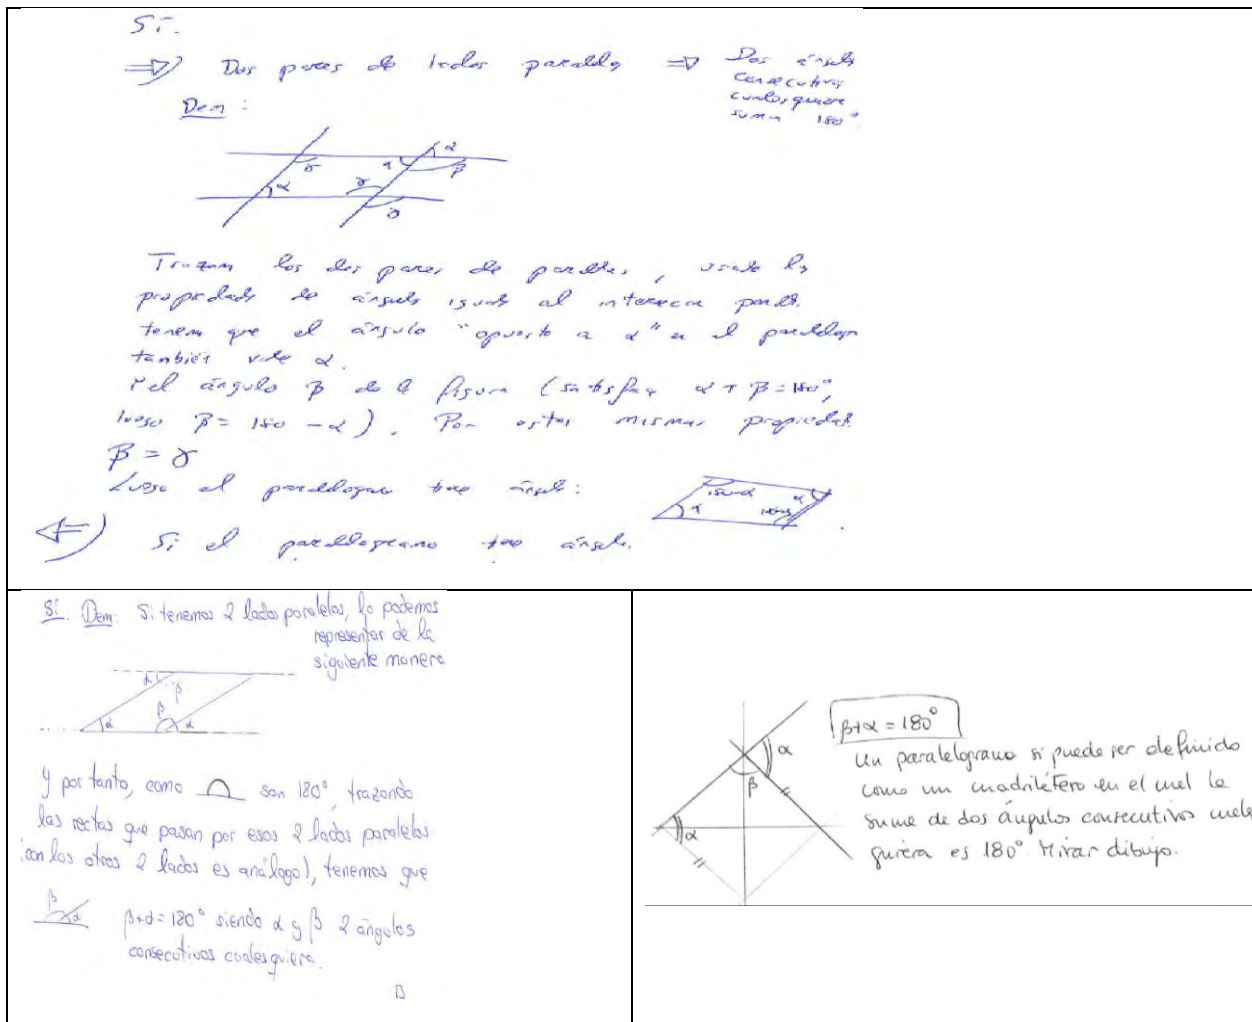 Sí.
⇒) Dos pares de lados paralelos ⇒ Dos ángulos
consecutivos
cualesquiera
suman 180°
Dem:
α
γ α β
α γ
γ
Trazam los dos pares de paralelas, usando las
propiedades de ángulos iguales al intersecar
tenem que el ángulo "opuesto a α" en el
también vale α.
Y el ángulo β de la figura (satisface α + β = 180°,
luego β = 180 - α). Por estas mismas
β = γ
Luego el tiene ángulos:
180-α α
α
⇐) Si el paralelogramo tiene ángulos
Sí. Dem: Si tenemos 2 lados paralelos, lo podemos
representar de la
siguiente manera
α β
β
α α
y por tanto, como son 180°, trazando
las rectas que pasan por esos 2 lados paralelos
(con los otros 2 lados es análogo), tenemos que
β α β+α=180° siendo α y β 2 ángulos
consecutivos cualesquiera.
β+α = 180°
α
β
α
Un paralelogramo si puede ser definido
como un cuadrilátero en el cual la
suma de dos ángulos consecutivos cuales
quiera es 180°. Mirar dibujo.